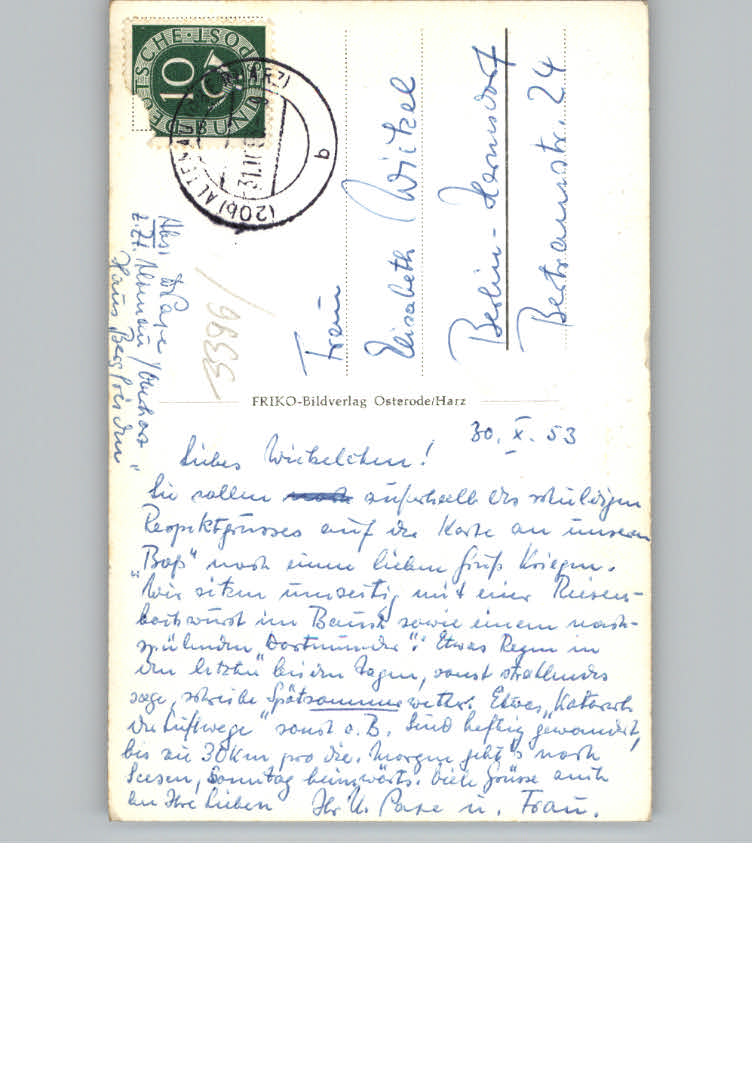 DEUTSCHE · POST
BUNDES
10
(20b) ALTENAU (HARZ)
31.10.
b
Abs. Pase
z. Zt. Altenau / Oberharz
"Haus Bergfrieden"
9696/
Frau
Elisabeth Wickel
Berlin-Hermsdorf
Bertramstr. 24
FRIKO-Bildverlag Osterode/Harz
30. X. 53
Liebes Wickelchen!
Sie sollen außerhalb des schuldigen
Respektgrusses auf der Karte an unseren
"Boß" noch einen lieben Gruß kriegen.
Wir sitzen umseitig mit einer Riesen-
bockwurst im Bauch sowie einem nach-
spülenden "Dortmunder". Etwas Regen in
den letzten beiden Tagen, sonst strahlendes
sage, schreibe Spätsommerwetter. Etwas "Katarrh
der Luftwege" sonst o. B. Sind heftig gewandert,
bis zu 30 km pro die. Morgen geht's nach
Seesen, Sonntag heimwärts. Viele Grüsse auch
an Ihre Lieben Ihr K. Pase u. Frau.